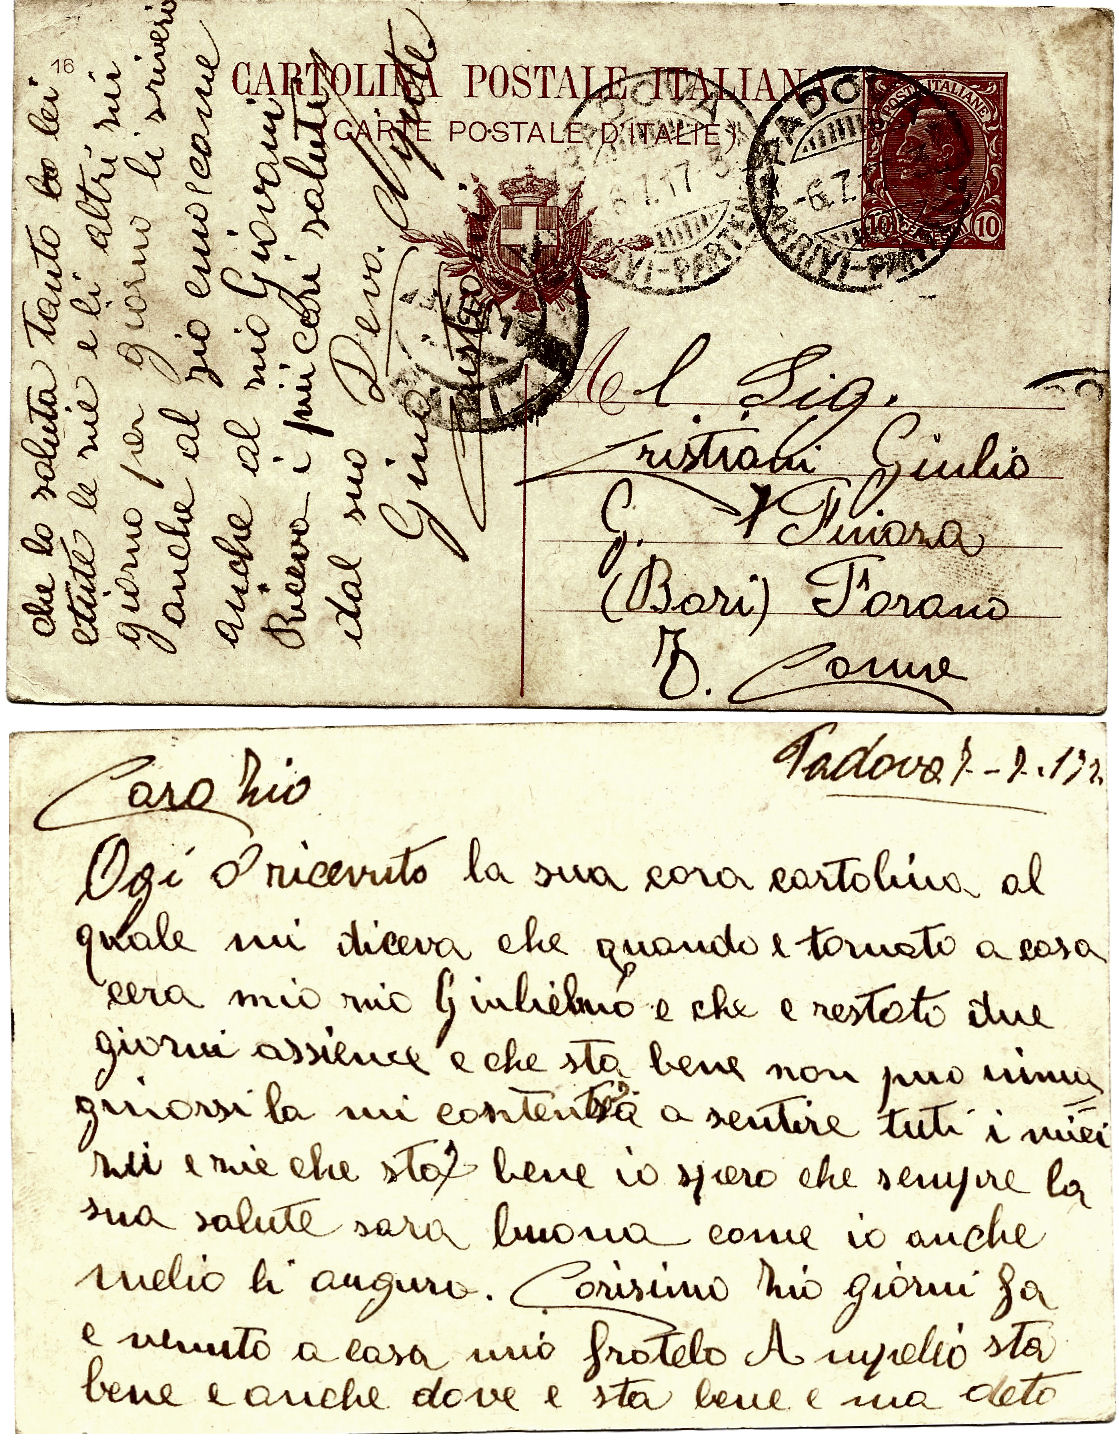 16
CARTOLINA POSTALE ITALIANA
(CARTE POSTALE D'ITALIE)
PADOVA
6.7.17
ARRIVI-PARTENZE
PADOVA
-6.7.
ARRIVI-PARTEN
POSTE ITALIANE
10 10
Al Sig.
Cristiani Giulio
G. Finanza
(Bari) Forano
T. Comue
che lo saluta tanto lei
e tute le zie e li altri zii
giorno per giorno li scriverò
anche al zio emo come
anche al zio Giovani
Riceva i piu cari saluti
dal suo Devo. Nipote
Gino Cristiani
Padova 7-7-17
Caro Zio
Ogi ò ricevuto la sua cara cartolina al
quale mi diceva che quando e tornato a casa
cera mio zio Giulielmo e che e restato due
giorni assieme e che sta bene non puo nima
ginarsi la mi contentesa a sentire tuti i miei
zii e zie che sta bene io spero che sempre la
sua salute sara buona come io anche
melio li auguro. Carisimo Zio giorni fa
e venuto a casa mio fratelo Ampelio sta
bene e anche dove e sta bene e ma deto